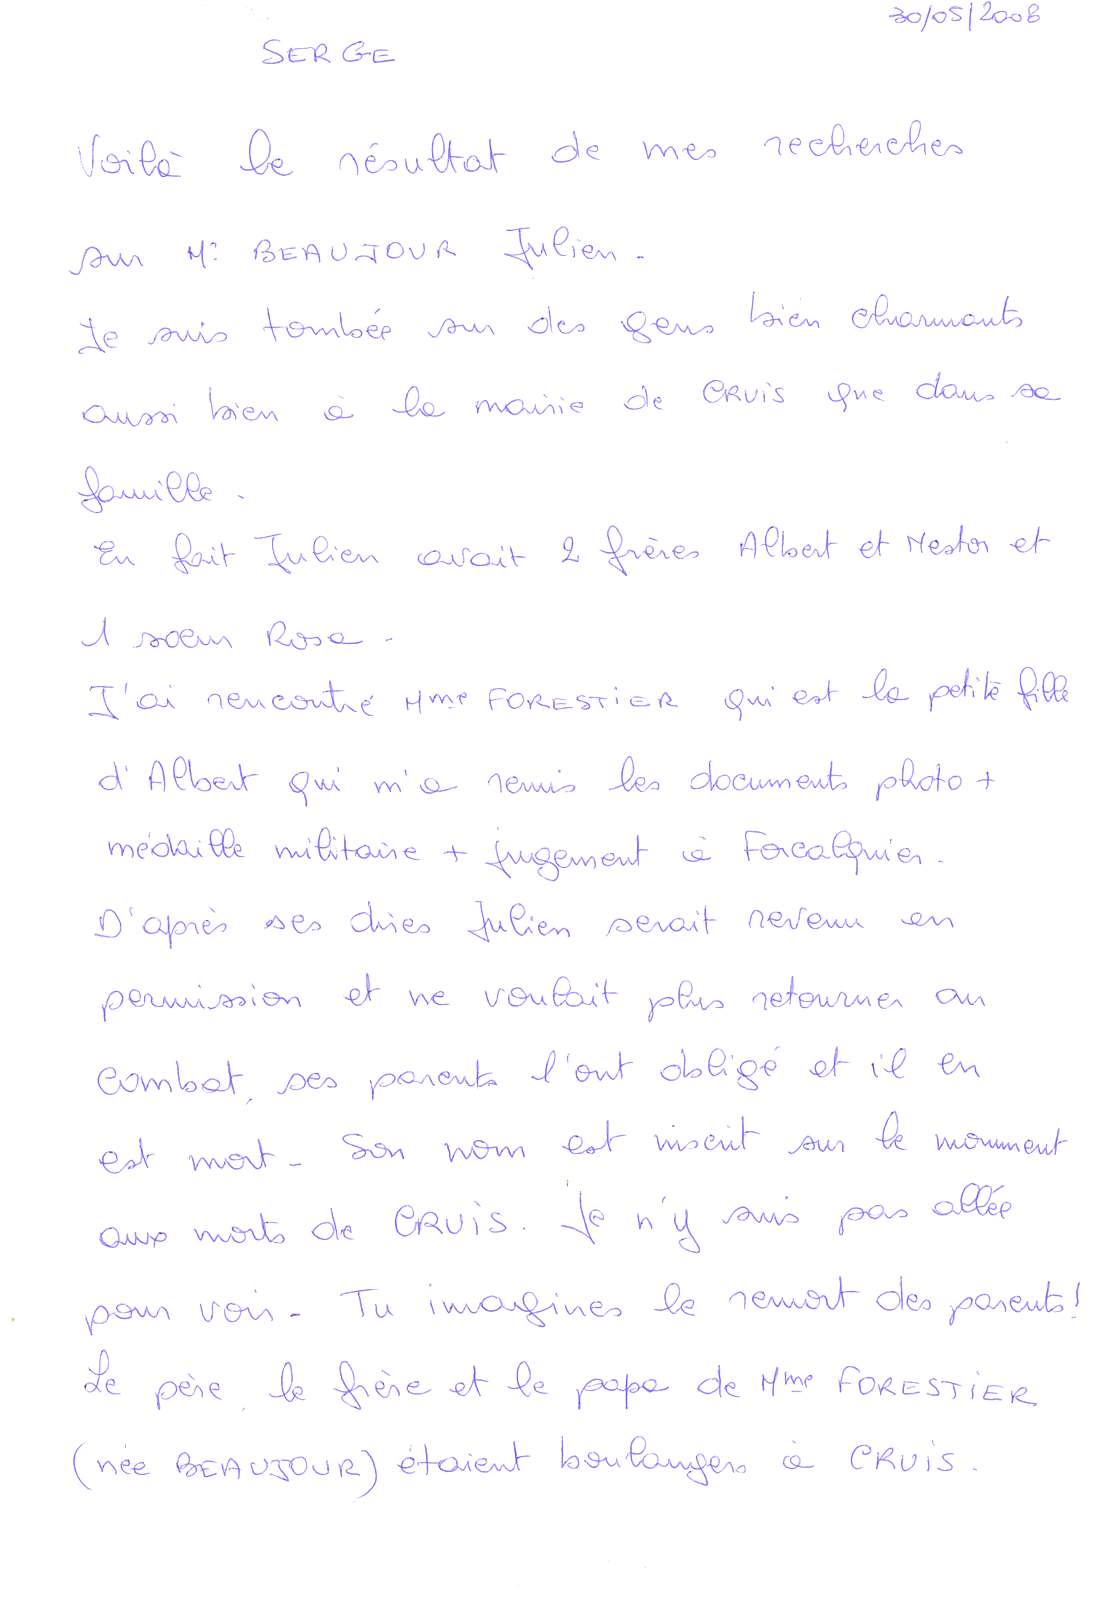 30/05/2008
SERGE
Voilà le résultat de mes recherches
sur Mr BEAUJOUR Julien.
Je suis tombée sur des gens bien charmants
aussi bien à la mairie de CRUIS que dans sa
famille.
En fait Julien avait 2 frères Albert et Nestor et
1 soeur Rosa.
J'ai rencontré Mme FORESTIER qui est la petite fille
d'Albert qui m'a remis les documents photo +
médaille militaire + jugement à Forcalquier.
D'après ses dires Julien serait revenu en
permission et ne voulait plus retourner au
combat, ses parents l'ont obligé et il en
est mort - Son nom est inscrit sur le monument
aux morts de CRUIS. Je n'y suis pas allée
pour voir - Tu imagines le remort des parents!
Le père, le frère et le papa de Mme FORESTIER
(née BEAUJOUR) étaient boulangers à CRUIS.